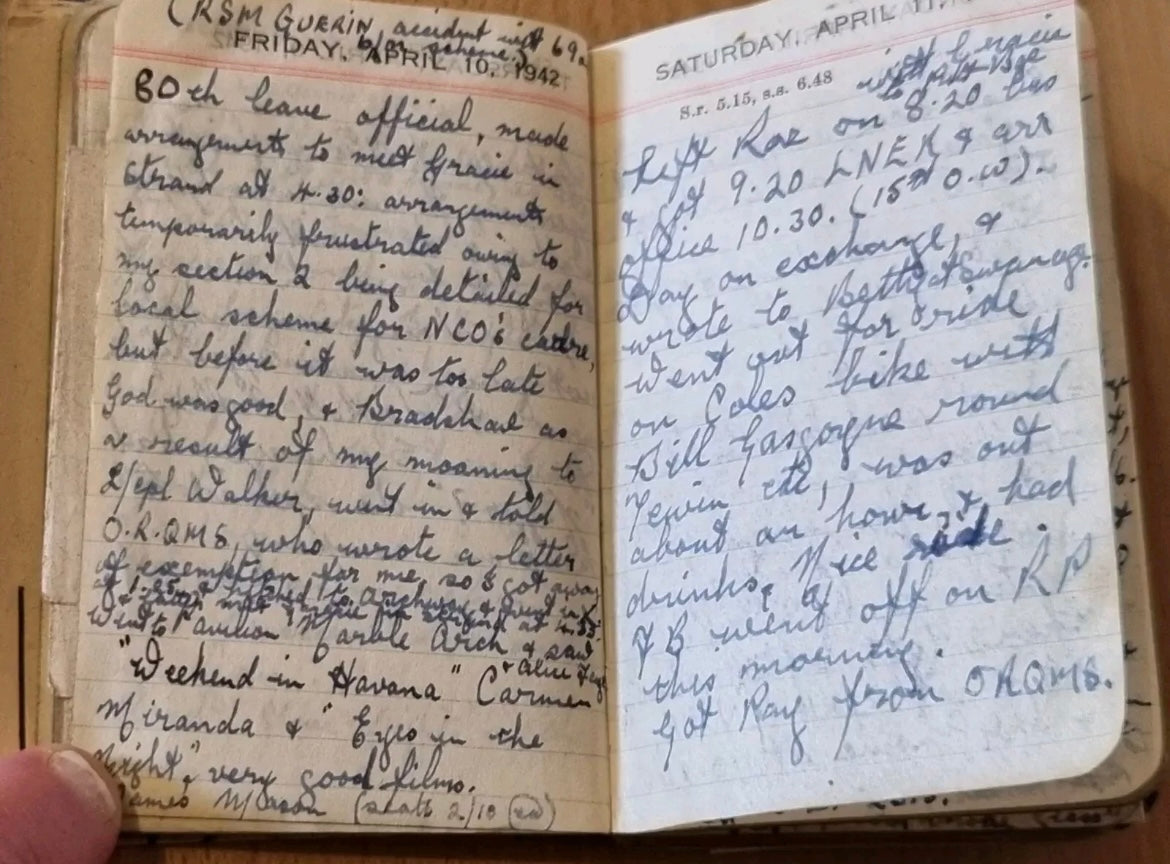 (RSM GUERIN accident with 69
FRIDAY, APRIL 10, 1942
on scheme.)
80th leave official, made
arrangements to meet Gracie in
Strand at 4.30: arrangements
temporarily frustrated owing to
my section 2 being detailed for
local scheme for NCO's cadre,
but before it was too late
God was good, & Bradshaw as
a result of my moaning to
L/cpl Walker, went in & told
O.R.QMS, who wrote a letter
of exemption for me, so I got away
at 1.25, & hitched to Archway &
& later met Gracie in Strand at
Went to Pavilion Marble Arch & saw
& Alice Faye
"Weekend in Havana" Carmen
Miranda & "Eyes in the
Night", very good films.
James Mason (seats 2/10 ea)
SATURDAY, APRIL 11,
S.r. 5.15, s.s. 6.48
with Gracie
to
Left Rae on 8.20 bus
& got 9.20 LNER & arr
office 10.30. (15th O.W).
Day on exchange, &
wrote to Betty at Swanage.
Went out for ride
on Coles bike with
Bill Gascogne round
Tewin etc, was out
about an hour, & had
drinks. Nice ride.
FB went off on RP
this morning.
Got Ray from ORQMS.